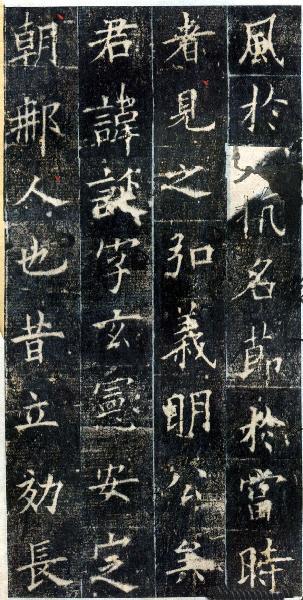 風於抗名節於當時
者見之弘義明公矣
君諱誕字玄憲安定
朝那人也昔立効長